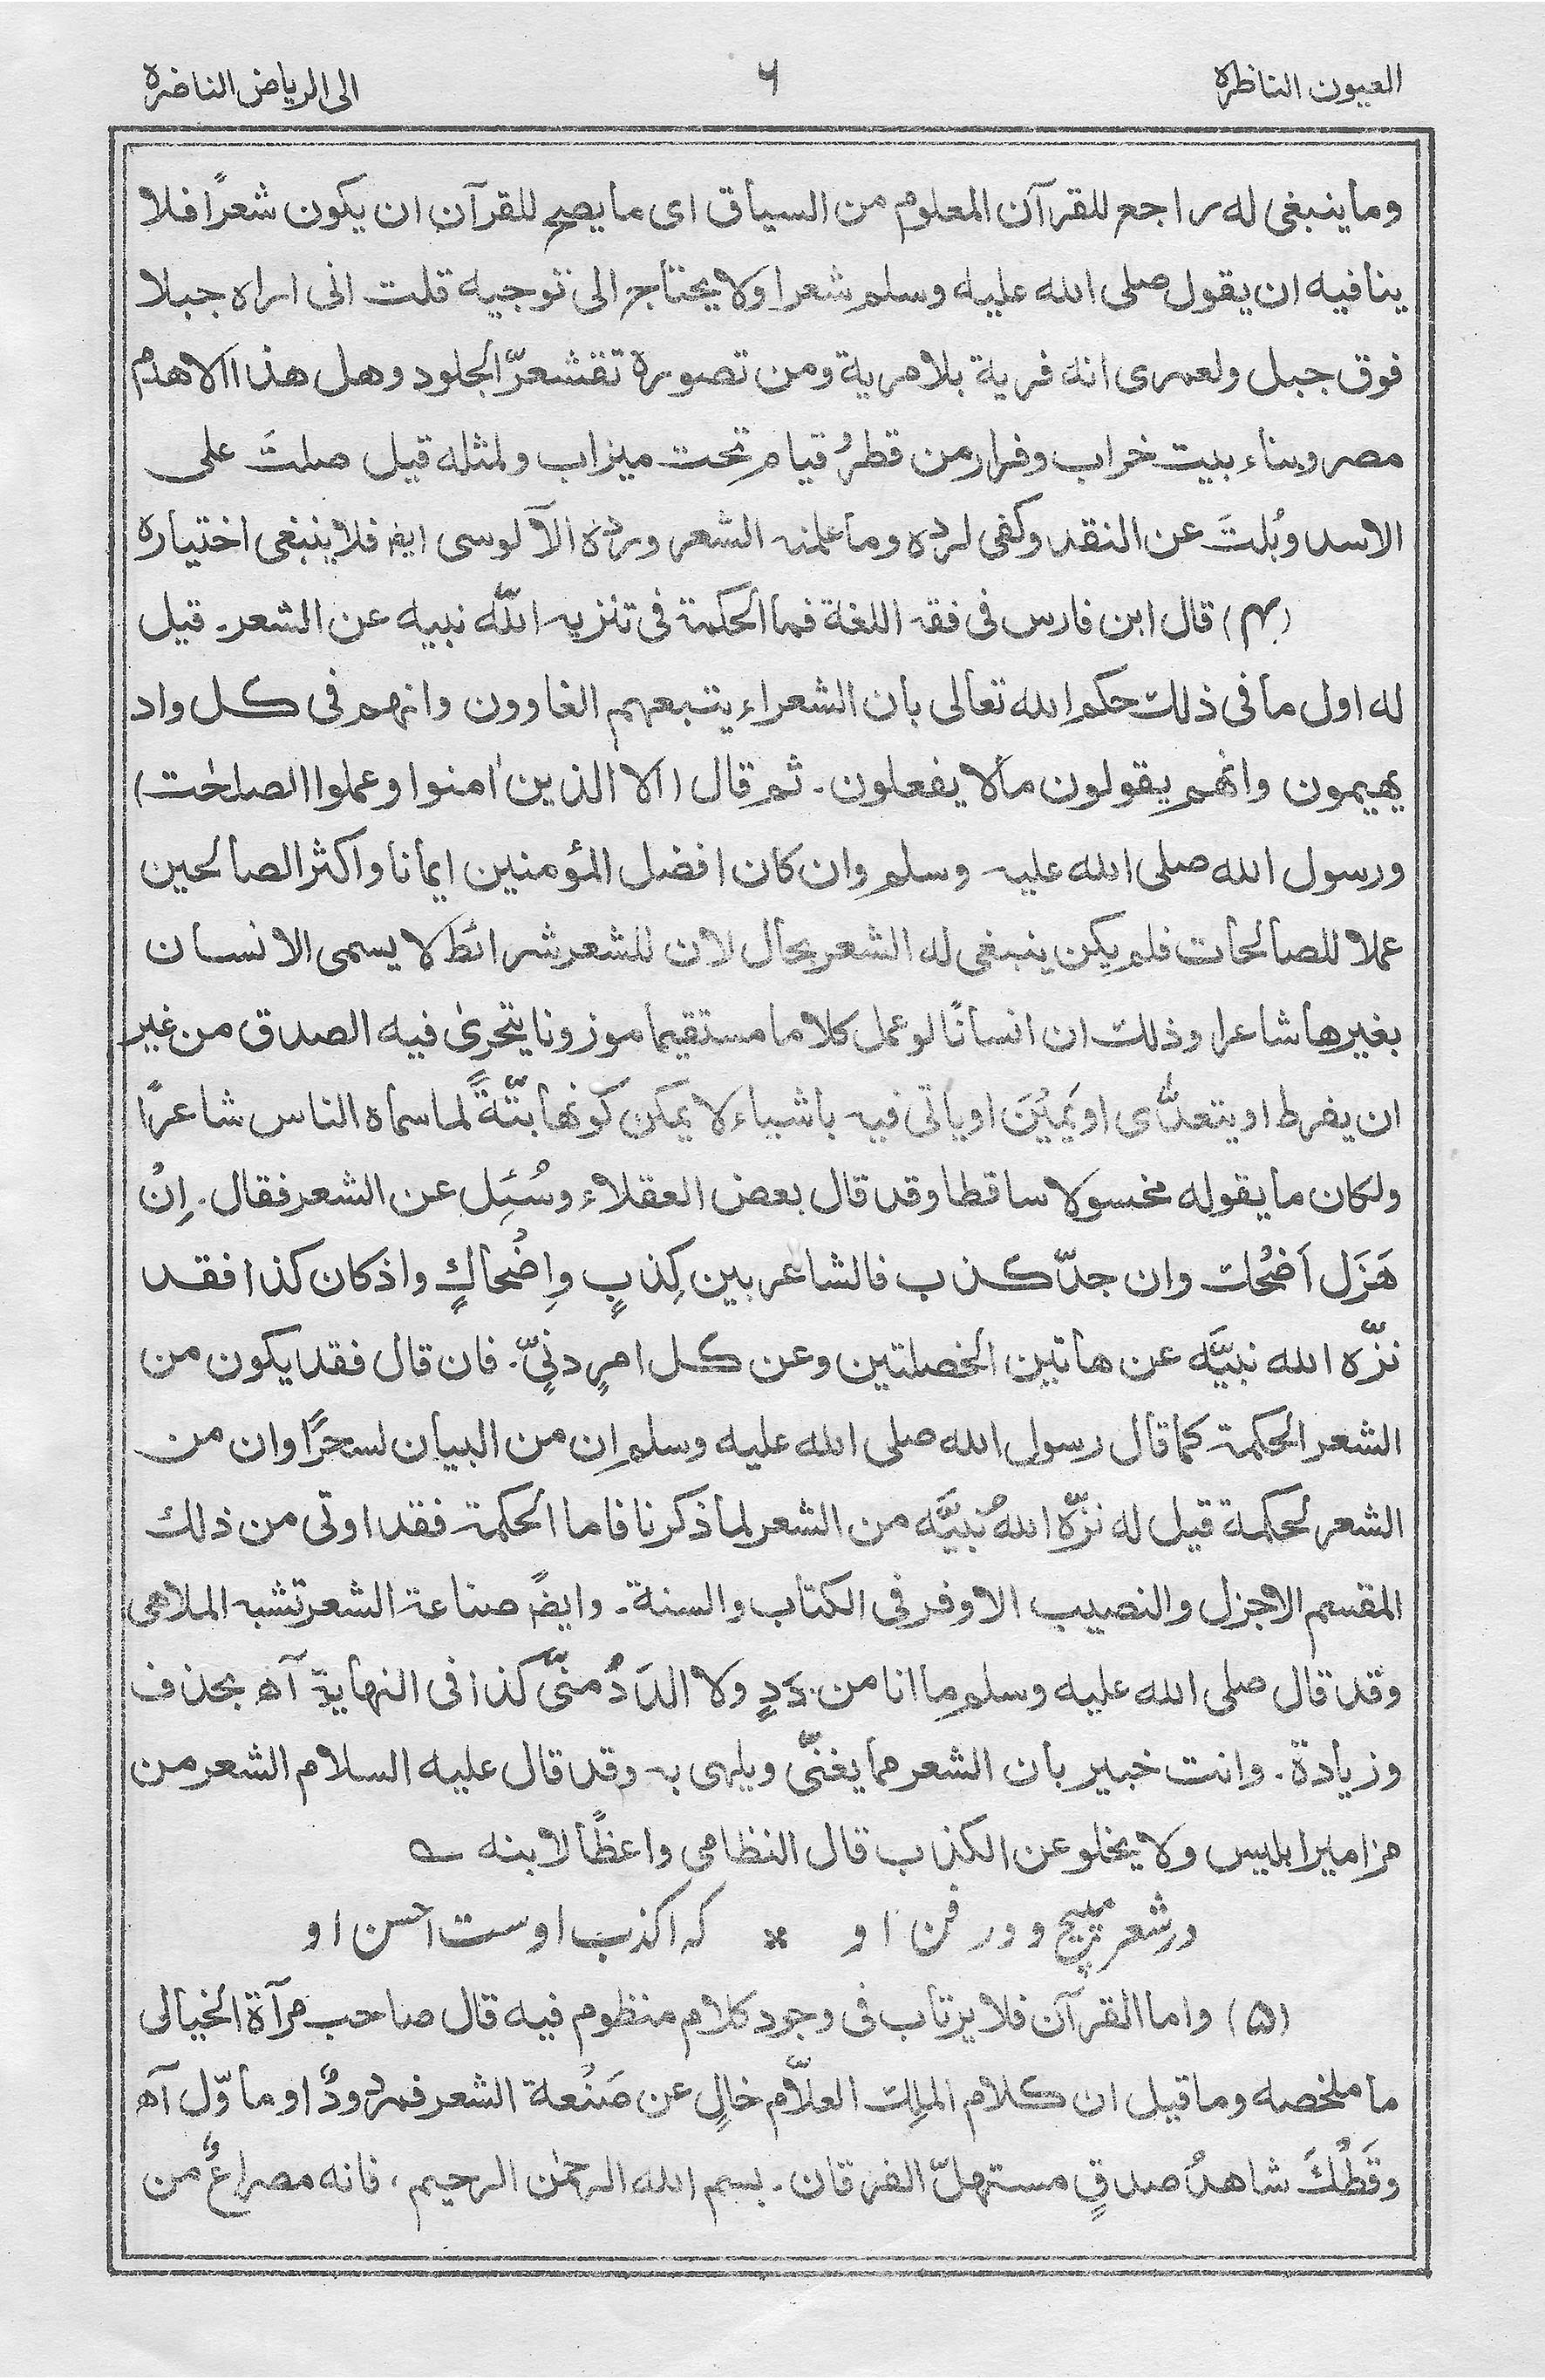 العيون الناظرة ٦ الى الرياض الناضرة
وما ينبغى له راجع للقرآن المعلوم من السياق اى ما يصح للقرآن ان يكون شعرًا فلا
ينافيه ان يقول صلى الله عليه وسلم شعرا ولا يحتاج الى توجيه قلت انى اراه جبلا
فوق جبل ولعمرى انه فرية بلا مرية ومن تصوره تقشعرّ الجلود وهل هذا الا هدم
مصر وبناء بيت خراب وفرار من قطرٍ قيام تحت ميزاب ولمثله قيل صلتَ على
الاسد وبُلتَ عن النقد وكفى لرده وما علمنه الشعر وردّه الآلوسى ايضا فلا ينبغى اختياره
(۴) قال ابن فارس فى فقه اللغة فما الحكمة فى تنزيه اللّٰه نبيه عن الشعر۔ قيل
له اول ما فى ذلك حكم الله تعالى بان الشعراء يتبعهم الغاوون وانهم فى كل واد
يهيمون وانهم يقولون مالا يفعلون۔ ثم قال (الا الذين اٰمنوا وعملوا الصلحٰت)
ورسول الله صلى الله عليه وسلم وان كان افضل المؤمنين ايمانا واكثر الصالحين
عملا للصالحات فلم يكن ينبغى له الشعر بحال لان للشعر شرائط لا يسمى الانسان
بغيرها شاعرا وذلك ان انسانًا لو عمل كلاما مستقيما موزونا يتحرىٰ فيه الصدق من غير
ان يفرط او يتعدّٰى او يَمِيْنَ او ياتى فيه باشياء لا يمكن كونها بتّةً لما سماه الناس شاعرًا
ولكان ما يقوله مخسولا ساقطا وقد قال بعض العقلاء وسُئِل عن الشعر فقال۔ اِنْ
هَزَل اَضْحَك وان جدّ كذب فالشاعر بين كِذبٍ واِضْحاكٍ واذ كان كذا فقد
نزّه الله نبيَّه عن هاتين الخصلتين وعن كل امرٍ دنىٍّ۔ فان قال فقد يكون من
الشعر الحكمة كما قال رسول الله صلى الله عليه وسلم اِن من البيان لسحرًا وان من
الشعر لحكمة قيل له نزّه اللهُ نبيَّه من الشعر لما ذكرنا فاما الحكمة فقد اوتى من ذلك
المقسم الاجزل والنصيب الاوفر فى الكتاب والسنة۔ وايضًا صناعة الشعر تشبه الملاهى
وقد قال صلى الله عليه وسلم ما انا من دَدٍ ولا الدَدُ منّى كذا فى النهاية آه بحذف
وزيادة۔ وانت خبير بان الشعر مما يغنّى ويلهى به وقد قال عليه السلام الشعر من
مزامير ابليس ولا يخلو عن الكذب قال النظامى واعظًا لابنه ؎
در شعر مپیچ و در فن او * که اکذب اوست احسن او
(۵) واما القرآن فلا يرتاب فى وجود كلام منظوم فيه قال صاحب مرآة الخيالى
ما ملخصه وما قيل ان كلام الملِك العلّام خالٍ عن صَنْعة الشعر فمردودٌ او ماوّل آه
وقَطْكَ شاهدُ صدقٍ مستهلّ الفرقان۔ بسم الله الرحمٰن الرحيم، فانه مصراعٌ من